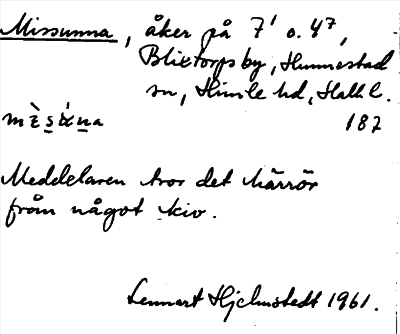 Missunna, åker på 7¹ o. 4⁷,
Blixtorps by, Hunnestad
sn, Himle hd, Hall l.
187
Meddelaren tror det härrör
från något kiv.
Lennart Hjelmstedt 1961.